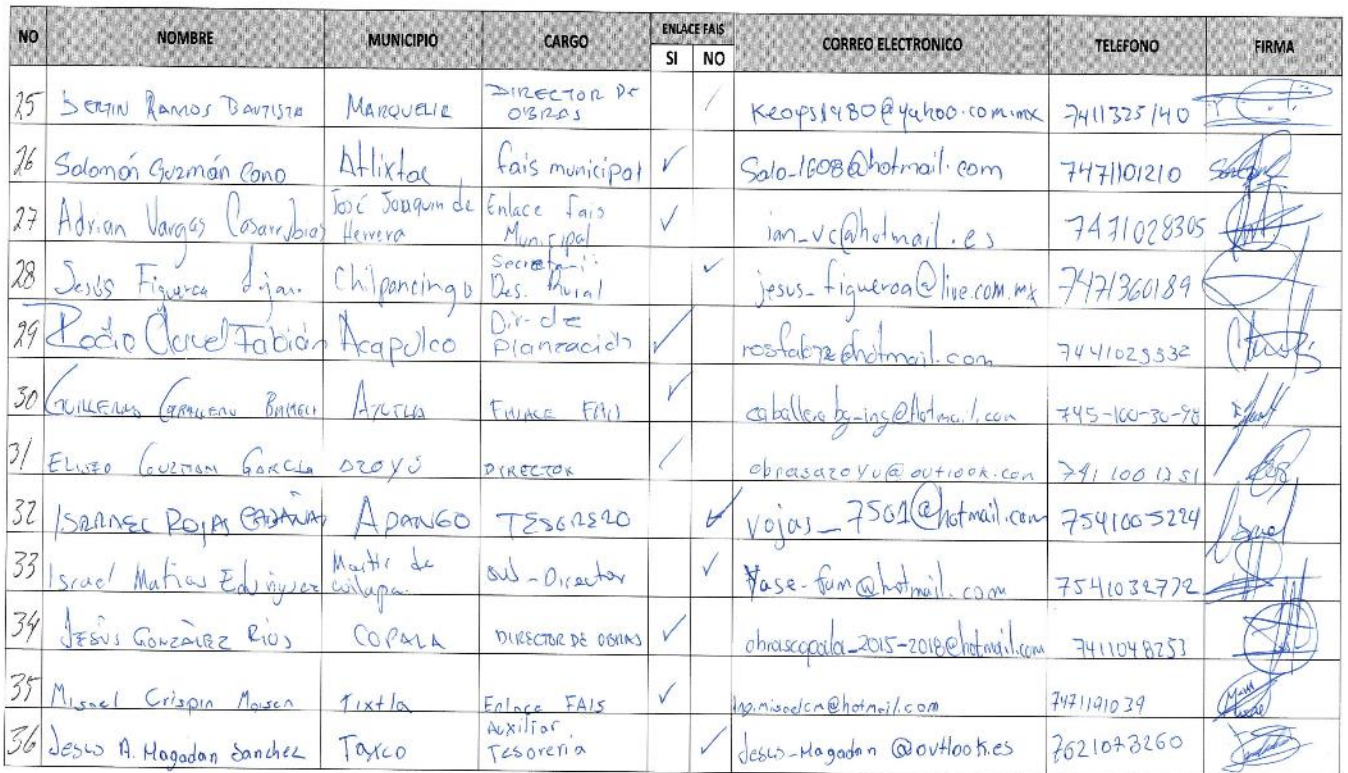 NO NOMBRE MUNICIPIO CARGO ENLACE FAIS SI NO CORREO ELECTRONICO TELEFONO FIRMA
25 BERTIN RAMOS BAUTISTA MARQUELIA DIRECTOR DE OBRAS Keops1980@yahoo.com.mx 7411325140
26 Salomón Guzmán Cano Atlixtac fais municipal Salo_1608@hotmail.com 7471101210
27 Adrian Vargas Casarrubias José Joaquin de Herrera Enlace fais Municipal ian_vc@hotmail.es 7471028305
28 Jesús Figueroa Chilpancingo Des. Rural jesus_figueroa@live.com.mx 7471360189
29 Clavel Fabián Acapulco Dir. de Planeación
30 GUILLERMO AYUTLA ENLACE FAIS 745-100-30-98
31 ELISEO GUZMAN GARCIA AZOYÚ DIRECTOR obrasazoyu@outlook.com 741 100 1351
32 ISRRAEL ROJAS APANGO TESORERO vojas_7501@hotmail.com 7541005224
33 Israel Matias Martir de cuilapan Sub-Director Yase-fum@hotmail.com 7541032772
34 JESÚS GONZÁLEZ RIOS COPALA DIRECTOR DE OBRAS obrascopala_2015-2018@hotmail.com 7411048253
35 Misael Crispin Tixtla Enlace FAIS ing.misaelcm@hotmail.com 7471191039
36 Jesus A. Magadan Sanchez Taxco Auxiliar Tesoreria Jesus-Magadan@outlook.es 7621073260